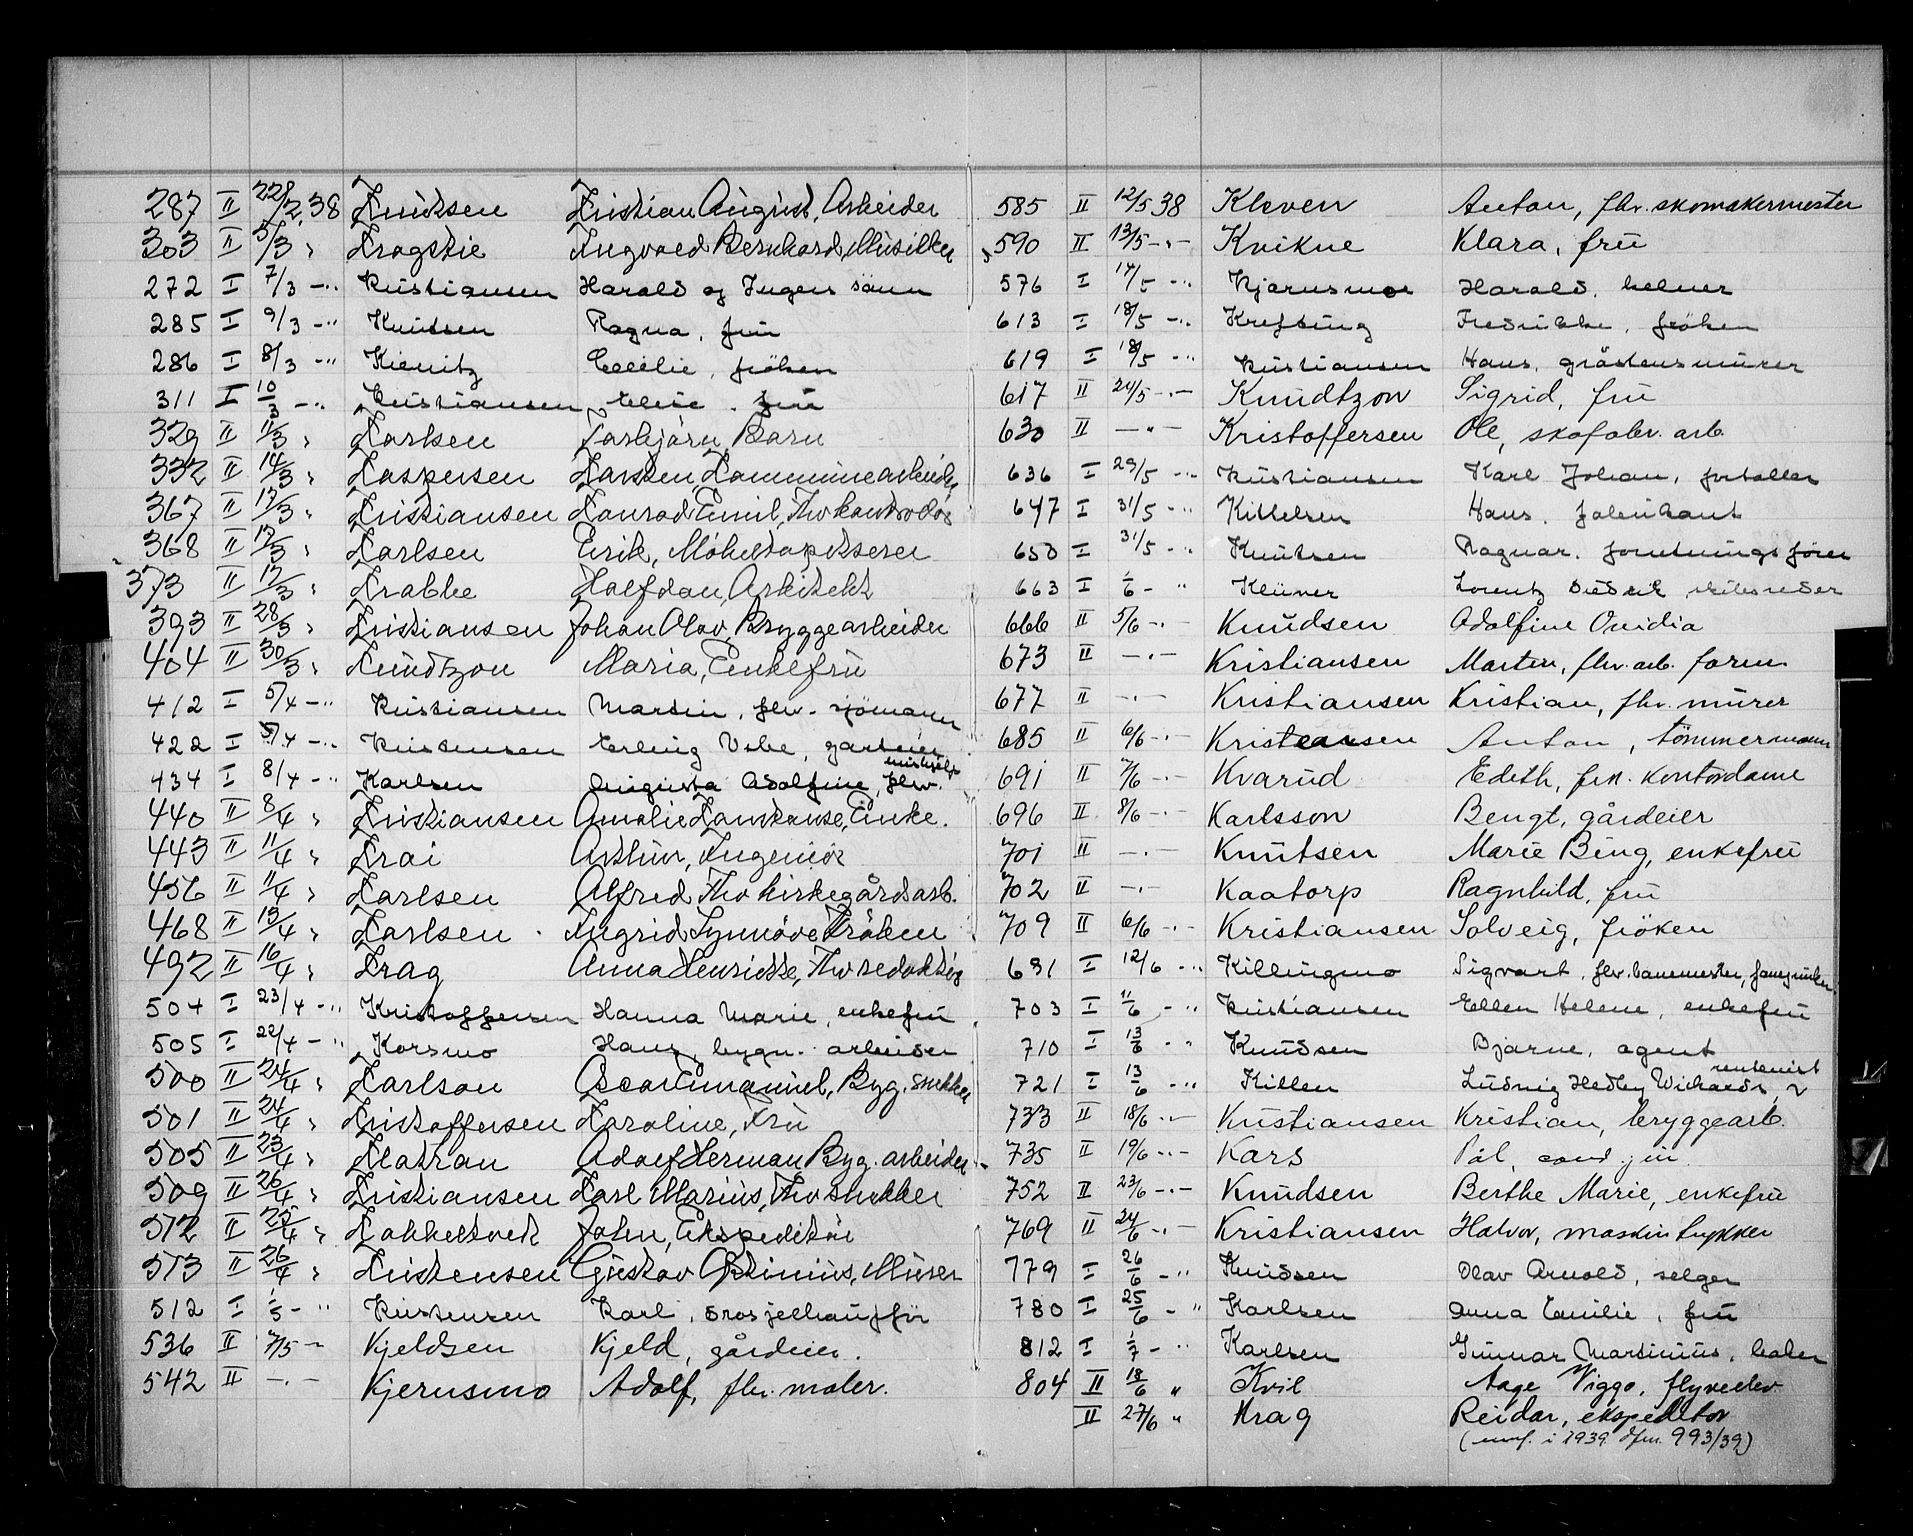 287 II 28/2 38 Knutsen Kristian August, Arbeider
303 II 5/3 " Krogstie Ingvald Bernhard, Musiker
272 I 7/3 -"- Kristiansen Harald og Ingers sønn
285 I 9/3 -"- Knutsen Ragna, fru
286 I 8/3 -"- Kienitz Cecilie, frøken
311 I 10/3 -"- Kristiansen Elise, fru
329 II 11/3 " Karlsen Torbjørn, Barn
332 II 14/3 " Kaspersen Karsten Kommunearbeider
367 II 17/3 " Kristiansen Konrad Emil, Fhv kontrolør
368 II 17/3 " Karlsen Erik, Möbeltapetserer
373 II 17/3 " Krabbe Halfdan, Arkitekt
393 II 28/3 " Kristiansen Johan Olav, Bryggearbeider
404 II 30/3 " Knudtzon Maria, Enkefru
412 I 5/4 -"- Kristiansen Martin, fhv. sjömann
422 I 5/4 -"- Kristensen Erling Vebe, gartner
434 I 8/4 -"- Karlsen Augusta Adolfine, fhv. hushjelp
440 II 8/4 " Kristiansen Amalie Konstanse, Enke.
443 II 11/4 " Krai Arthur, Ingeniør
456 II 11/4 " Karlsen Alfred Fhv kirkegårdsarb.
468 II 13/4 " Karlsen Ingrid Synnøve Frøken
492 II 16/4 " Krag Anna Henriette, Fhv redaktør
504 I 23/4 -"- Kristoffersen Hanna Marie, enkefru
505 I 22/4 -"- Korsmo Hans, bygn. arbeider
500 II 24/4 " Karlson Oscar Emanuel, Byg. snekker
501 II 24/4 " Kristoffersen Karoline, Fru
505 II 23/4 " Klatran Adolf Herman Byg. arbeider
509 II 26/4 " Kristiansen Karl Marius, Fhv snekker
512 II 25/4 " Kakkeltvek John, Ekspeditør
513 II 26/4 " Kristensen Gustav Optinius, Murer
512 I 1/5 -"- Kristensen Karl, drosjehauffør
536 II 7/5 - Kjeldsen Kjeld, gårdeier.
542 II -"- Kjerusmo Adolf, fhv. maler.
585 II 12/5 38 Kleven Anton, fhv. skomakermester
590 II 13/5 -"- Kvikne Klara, fru
576 I 14/5 -"- Kjærnsmoe Harald, kelner
613 I 18/5 -"- Krefting Fredrikke, frøken
619 I 18/5 -"- Kristiansen Hans, gråstensmurer
617 II 24/5 -"- Knudtzon Sigrid, fru
630 II -"- Kristoffersen Ole, skofabr. arb.
636 I 29/5 -"- Kristiansen Karl Johan, fortaller
647 I 31/5 -"- Kittelsen Hans, fabrikant
650 I 31/5 -"- Knutsen Ragnar, forretningsfører
663 I 1/6 -"- Klüver Lorentz Didrik skibsreder
666 II 5/6 -"- Knudsen Adolfine Ovidia
673 II -"- Kristiansen Morten, fhv. arb. form.
677 II -"- Kristiansen Kristian, fhv. murer
685 II 6/6 -"- Kristensen Anton, tömmermann
691 II 7/6 -"- Kvarud Edith, frk. kontordame
696 II 8/6 -"- Karlsson Bengt, gårdeier
701 II -"- Knutsen Marie Bing, enkefru
702 II -"- Kaatorp Ragnhild, fru
709 II 6/6 -"- Kristiansen Solveig, frøken
681 I 12/6 -"- Killingmo Sigvart, fhv. banemester,
703 I 11/6 -"- Kristiansen Ellen Helene, enkefru
710 I 13/6 -"- Knudsen Bjarne, agent
721 I 13/6 -"- Killen Ludvig Hedley Wichards, rentenist
733 II 18/6 -"- Kristiansen Kristian, bryggearb.
735 II 19/6 -"- Kars Pål, cand. jur.
752 II 23/6 -"- Knudsen Berthe Marie, enkefru
769 II 24/6 -"- Kristiansen Halvor, maskintrykker
779 I 26/6 -"- Knudsen Olav Arnold, selger
780 I 25/6 -"- Karlsen Anna Emilie, fru
812 I 1/7 -"- Karlsen Gunnar Martinius, baker
804 II 18/6 " Kvil Aage Viggo, flyveelev
II 27/6 " Krag Reidar, ekspeditør
( i 1939 993/39)